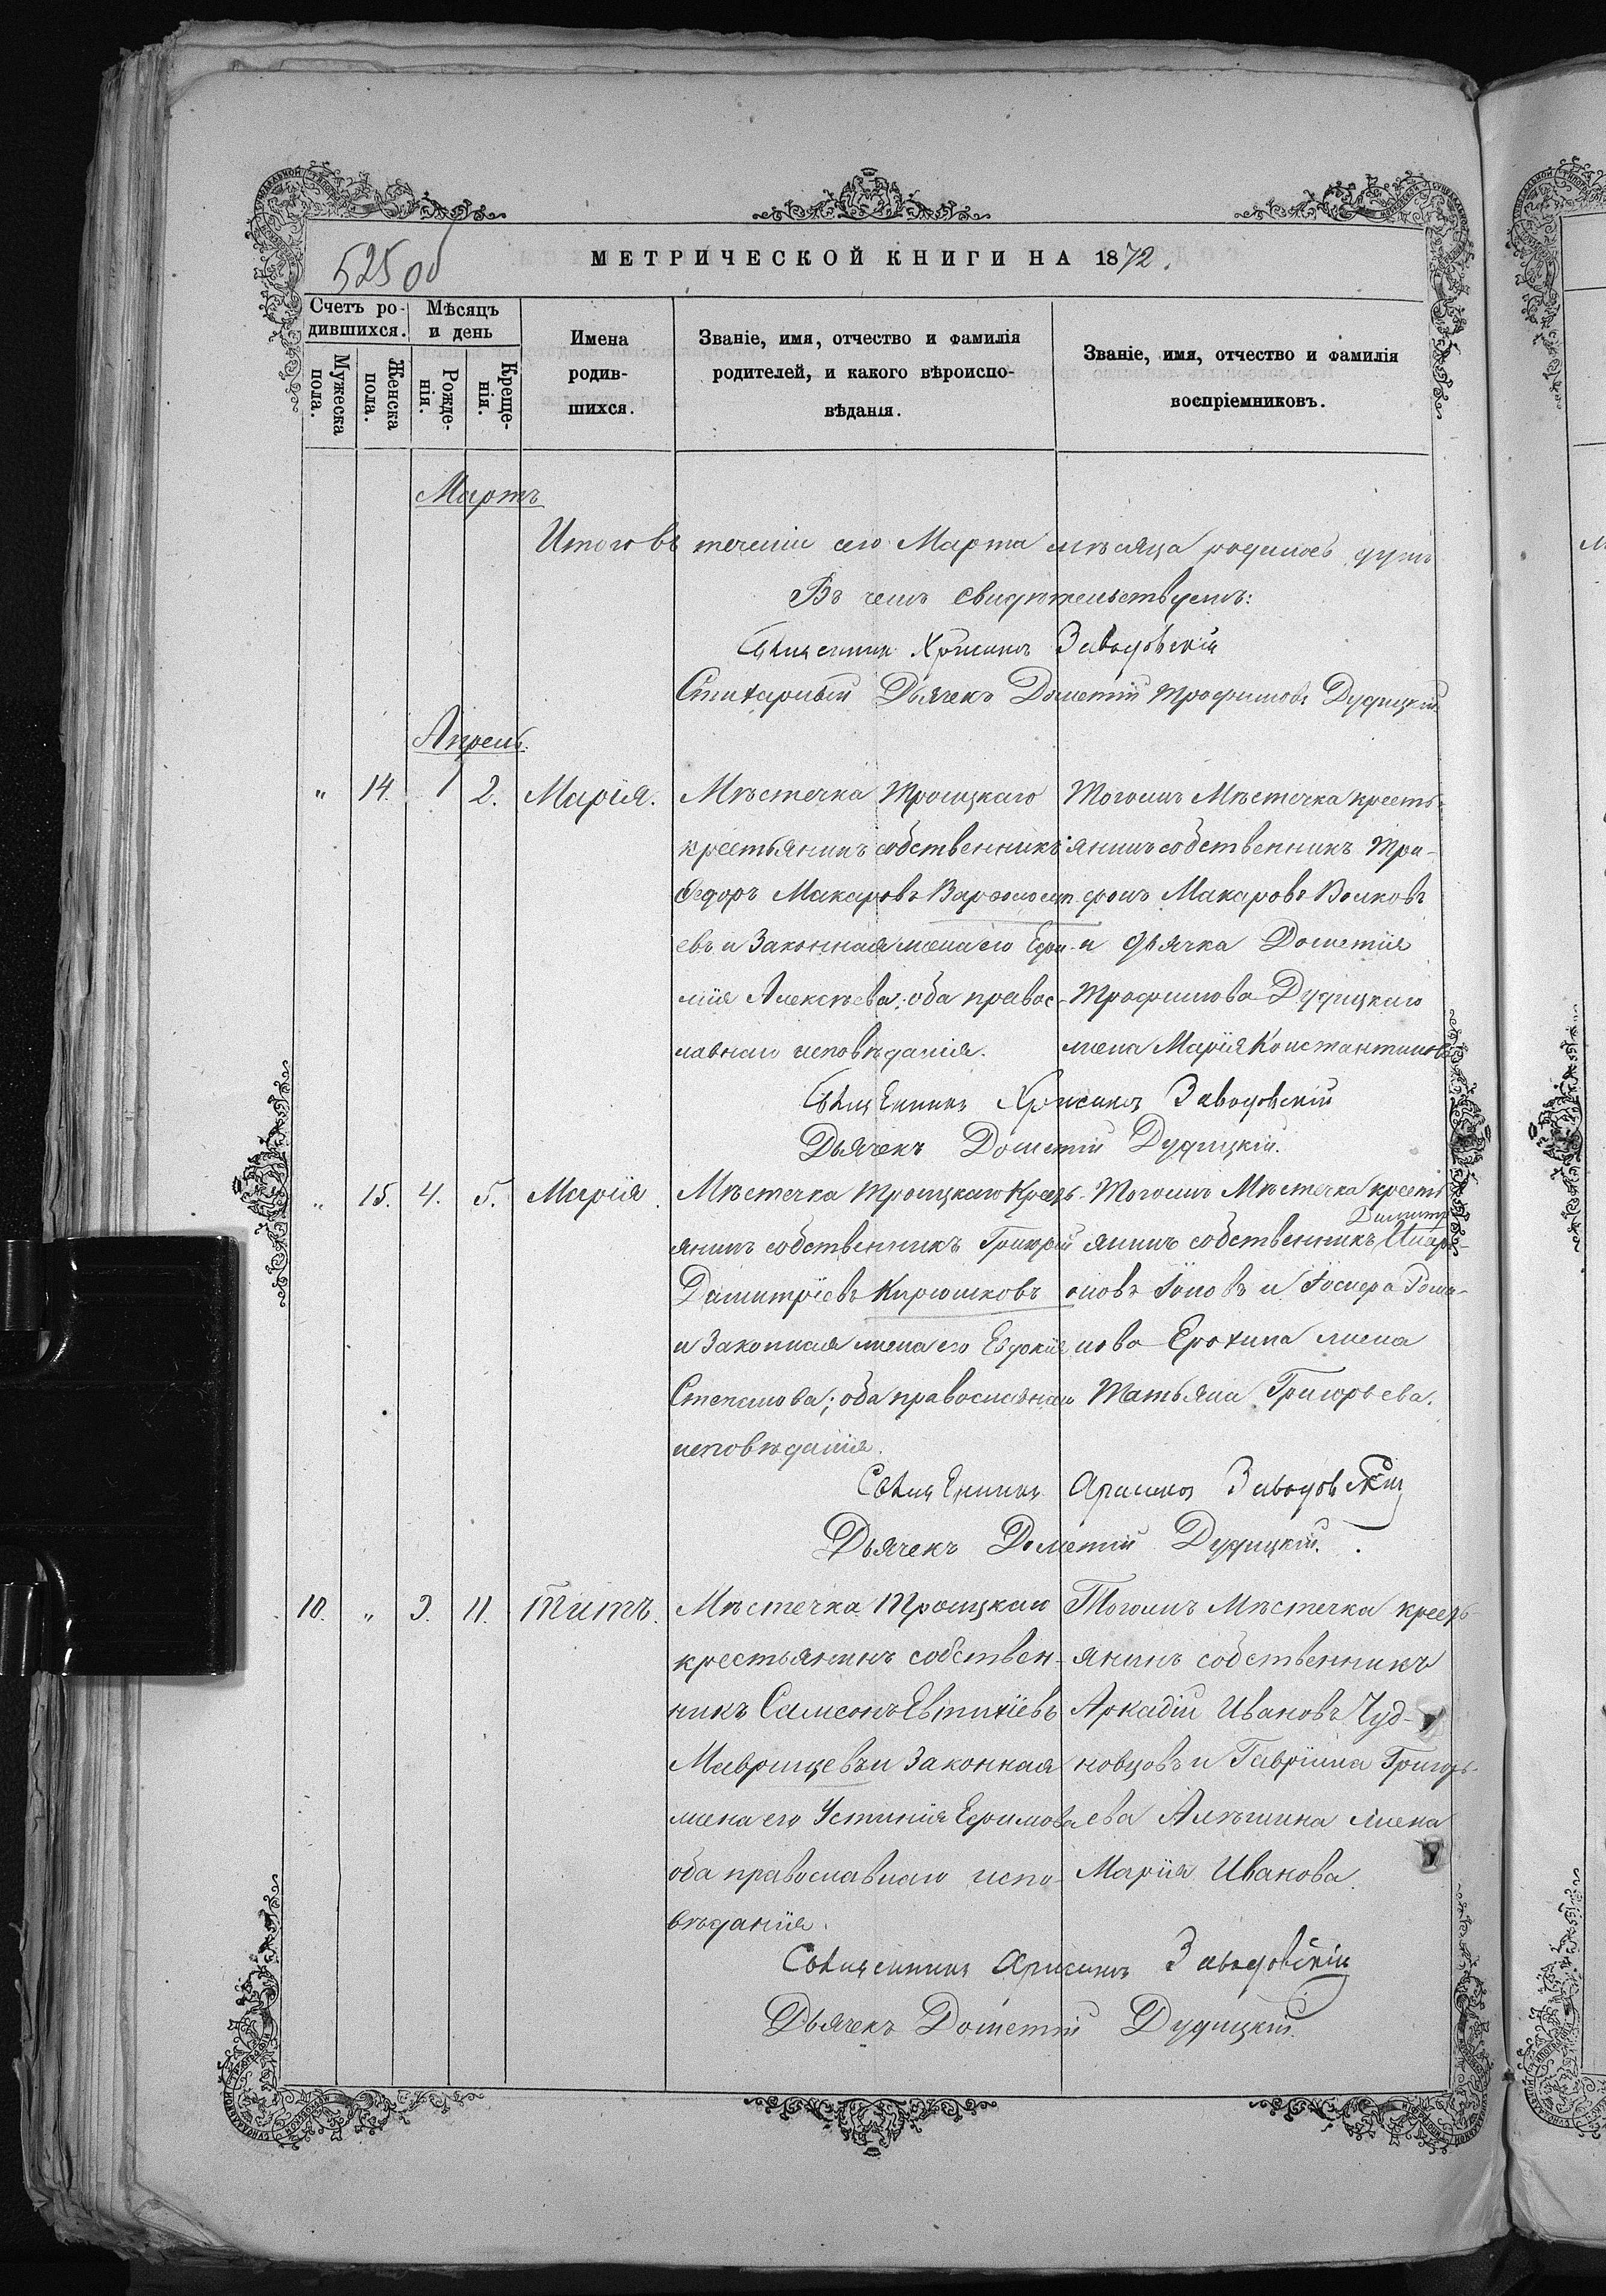 525 об
МЕТРИЧЕСКОЙ КНИГИ НА 1872.
Счетъ ро-
дившихся.
Мѣсяцъ
и день
Мужеска
пола.
Женска
пола.
Рожде-
нія.
Креще-
нія.
Имена
родив-
шихся.
Званіе, имя, отчество и фамилія
родителей, и какого вѣроиспо-
вѣданія.
Званіе, имя, отчество и фамилія
воспріемниковъ.
Мартъ
Итого въ теченіи сего Марта мѣсяца родилось
Въ чемъ свидѣтельствуемъ:
Священник Заводовскій
Стихарный Дьячекъ Дометій Трофимовъ Дудицкій
Апрель.
" 14. 1 2. Марія.
Мѣстечка Троицкаго
крестьянинъ собственникъ
Ѳедоръ Макаровъ Варфоломе-
евъ и Законная жена его Ефи-
мія Алексѣева; оба правос-
лавнаго исповѣданія.
Тогожъ Мѣстечка кресть-
янинъ собственникъ Тро-
фимъ Макаровъ Волковъ
и дьячка Дометія
Трофимова Дудицкаго
жена Марія Константинова
Священникъ Заводовскій
Дьячекъ Дометій Дудицкій.
" 15. 4. 5. Марія.
Мѣстечка Троицкаго Кресть-
янинъ собственникъ Григорій
Димитріевъ Кирюшковъ
и Законная жена его Евдокія
Степанова; оба православнаго
исповѣданія.
Тогожъ Мѣстечка кресть
Димитр
янинъ собственникъ
и Рома-
нова Ерохина жена
Татьяна Григорьева.
Священникъ Заводовскій
Дьячекъ Дометій Дудицкій.
10. " 9. 11. Титъ.
Мѣстечка Троицкаго
крестьянинъ собствен-
никъ Самсонъ Евтихіевъ
Маврищевъ и Законная
жена его Устинія Ефимова
оба православнаго испо-
вѣданія.
Тогожъ Мѣстечка кресть-
янинъ собственникъ
Аркадій Ивановъ Чуд-
новцовъ и Гавріила Григорь-
ева Алѣшина жена
Марія Иванова.
Священникъ Заводовскій
Дьячекъ Дометій Дудицкій.